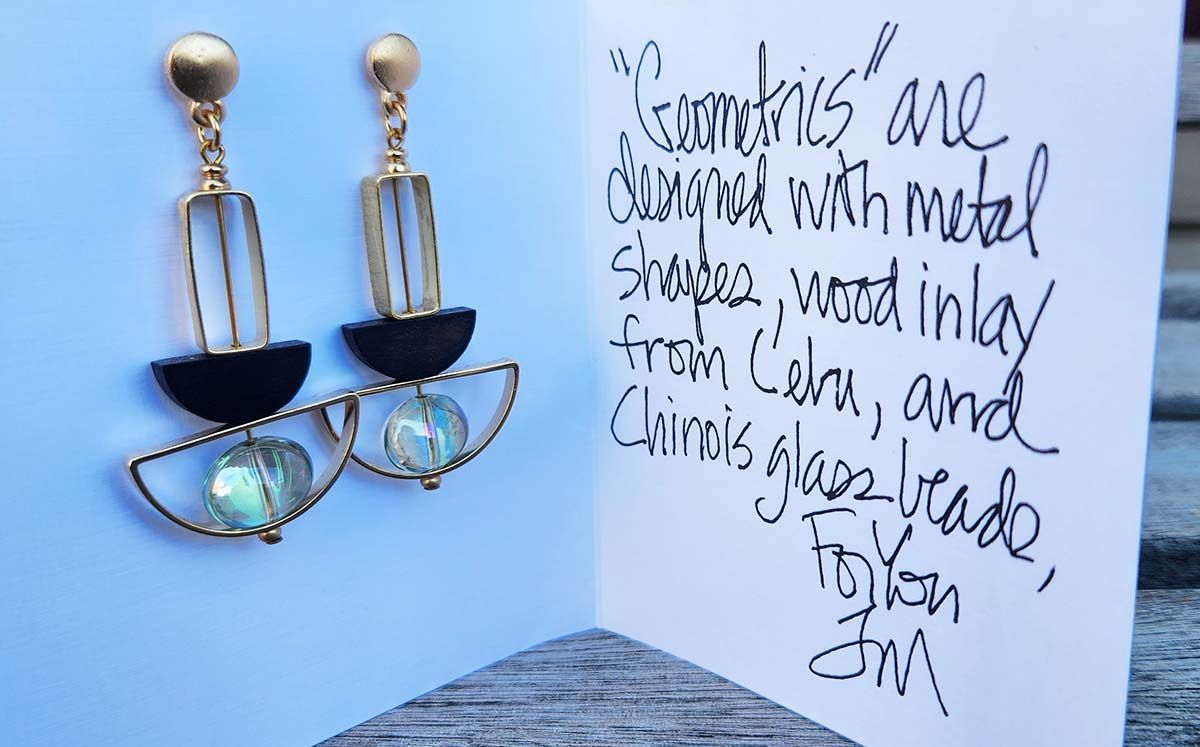 "Geometrics" are
designed with metal
shapes, wood inlay
from Cebu, and
Chinois glass beads,
For You
JM